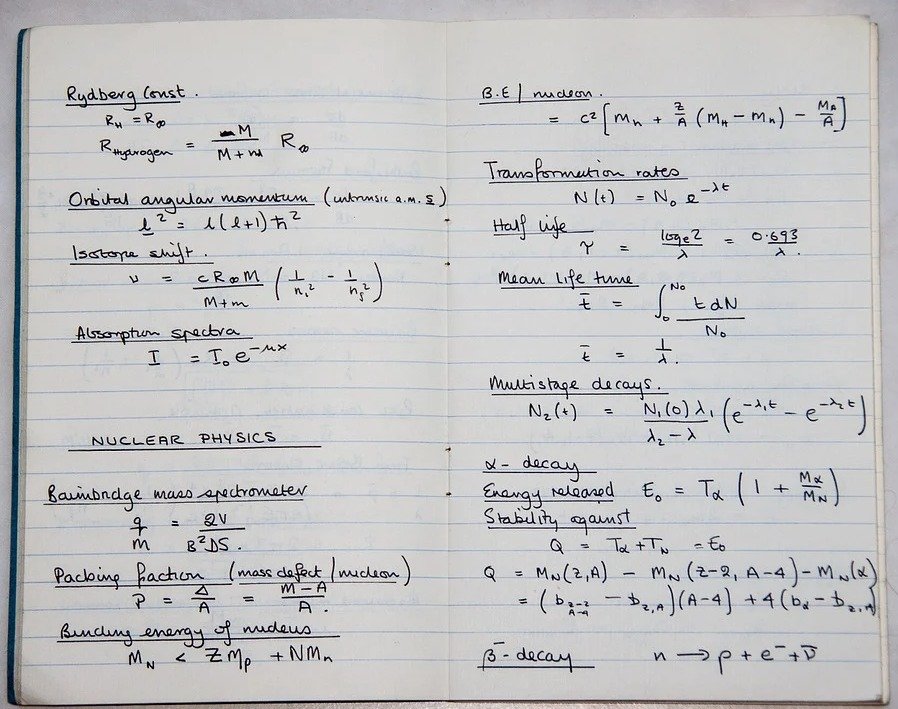 Rydberg Const.
R_H = R_∞
R_Hydrogen = M / (M+m) R_∞
Orbital angular momentum (intrinsic a.m. s)
l² = l(l+1)ħ²
Isotope shift.
ν = cR_∞M / (M+m) (1/n_i² - 1/n_f²)
Absorption spectra
I = I₀ e^(-μx)
NUCLEAR PHYSICS
Bainbridge mass spectrometer
q/m = 2V / B²DS.
Packing fraction (mass defect / nucleon)
P = Δ/A = (M-A)/A.
Binding energy of nucleus
M_N < ZM_p + NM_n
B.E / nucleon.
= c² [M_n + Z/A (M_H - M_n) - M_A/A]
Transformation rates
N(t) = N₀ e^(-λt)
Half life
τ = log_e 2 / λ = 0.693 / λ.
Mean life time
t̄ = ∫₀^N₀ t dN / N₀
t̄ = 1/λ.
Multistage decays.
N₂(t) = N₁(0) λ₁ / (λ₂ - λ) (e^(-λ₁t) - e^(-λ₂t))
α - decay
Energy released E₀ = T_α (1 + M_α/M_N)
Stability against
Q = T_α + T_N = E₀
Q = M_N(Z,A) - M_N(Z-2, A-4) - M_N(α)
= (b_(Z-2, A-4) - b_(Z,A))(A-4) + 4(b_α - b_(Z,A))
β⁻ - decay n → p + e⁻ + ν̄